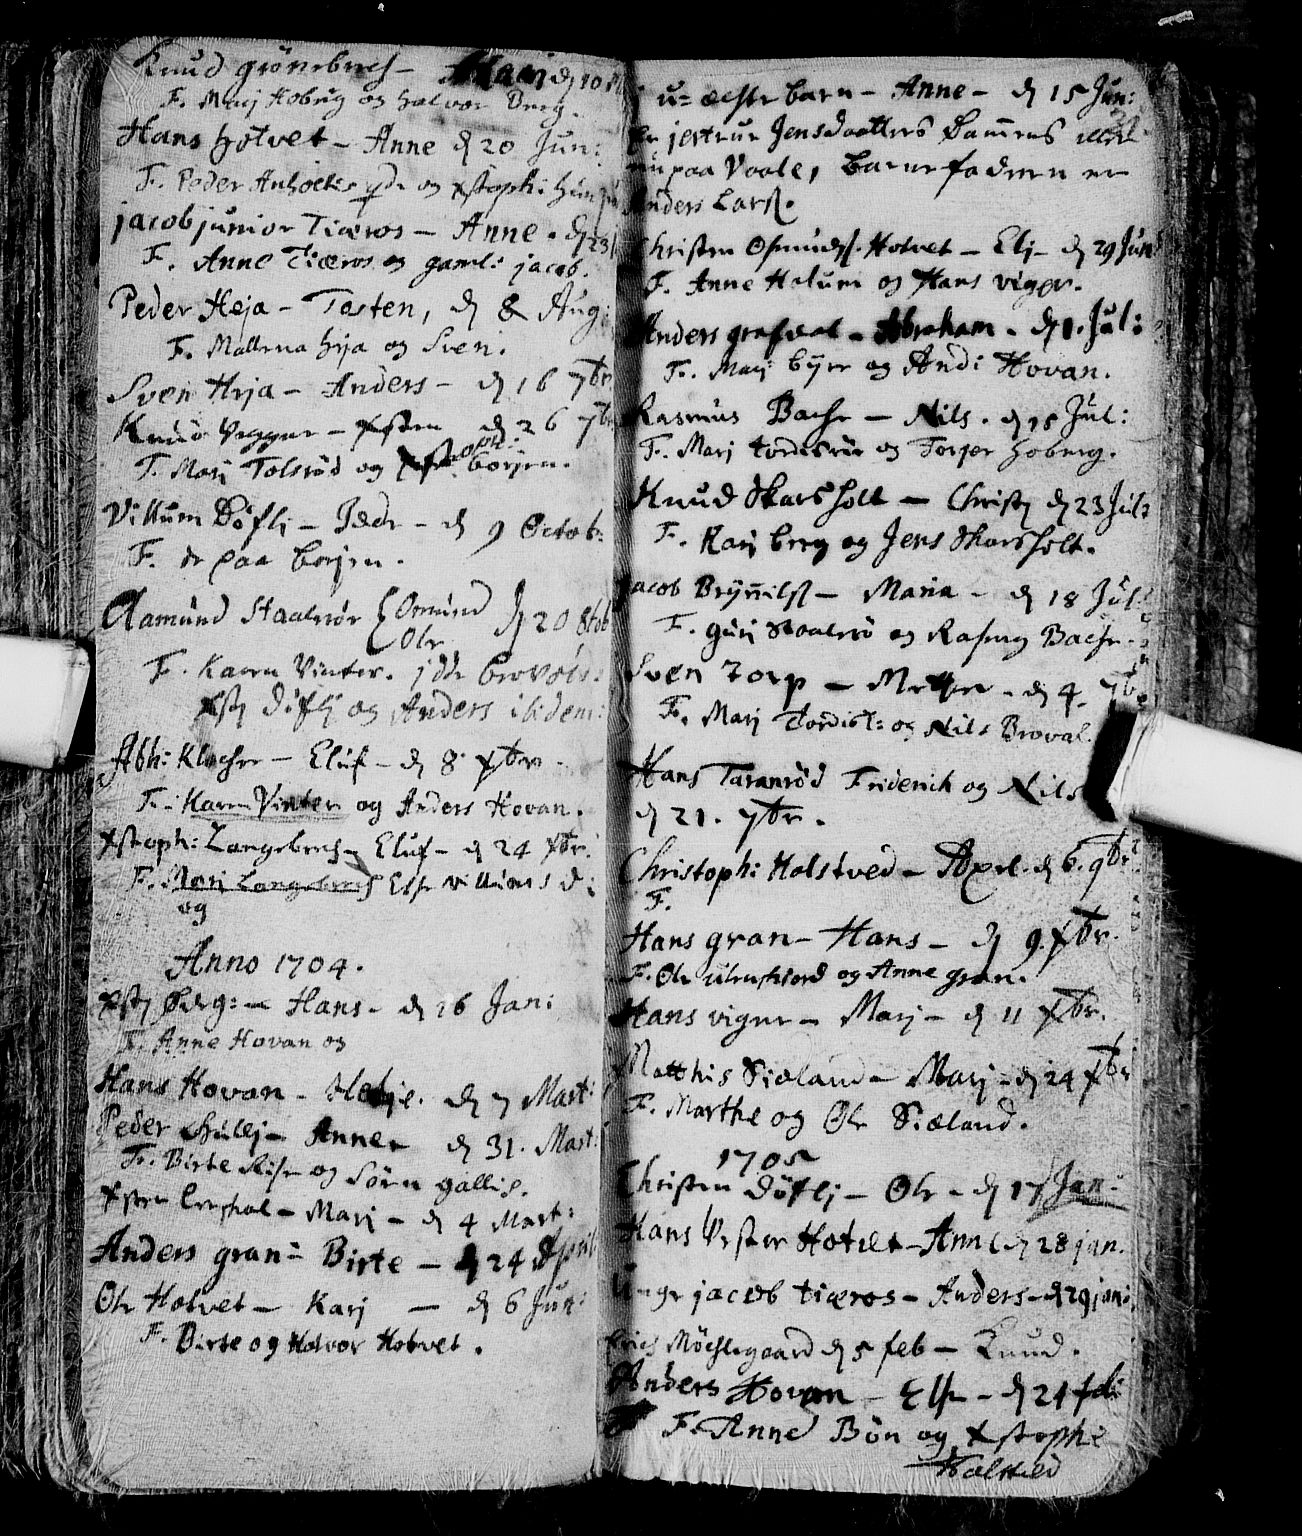 Knud grönebech - Marj d 10
F. Marj Hobug og Halvor Berg.
Hans Hotvet - Anne d 20 Jun:
F. Peder Anholtes og xstoph:
jacob junior Tiæros - Anne. d 23
F. Anne Tiæros og gamle jacob.
Peder Heja - Tosten, d 8 Aug:
F. Mallena Heja og Sven.
Sven Heja - Anders - d 16 7br
Knud Veggere - xsten d 26 7br
F. Marj Tolsröd og borjen.
Villum Döflj - Peder - d 9 Octob:
F. de paa borjen.
Aamund Staalerör { Omund d 20 8tob
Ole
F. Karen Vinter. jtte
xstj Döflj og Anders ibidem:
Abh: Klocher - Eluf - d 8 xbr.
F. Karen Vinter og Anders Hovan.
xstoph: Langebrech - Eluf - d 24 xbr.
F. Marj Langebrech Else Villums d:
og
Anno 1704.
xstj Ødeg: - Hans - d 26 Jan:
F. Anne Hovan og
Hans Hovan - Helje. d 7 Mart:
Peder Hullj - Anne - d 31. Mart:
F. Birte Rise og Sörn gallis.
xsten - Marj - d 4 Mart:
Anders gran - Birte - d 24 April
Ole Hotvet - Karj - d 6 Jun:
F. Birte og Halvor Hotvet.
u=echte barn - Anne - d 15 Jun:
jertrue Jensdaatters Barnens
paa Vaale, barnefaderen er
Anders Lars.
Christen Osmunds. Hotvet - Elj - d 29 Jun
F. Anne Holum og Hans viger.
Anders grefsral - Abraham - d 1. Jul:
F. Marj byre og Andr Hovan.
Rasmus Bache - Nils. d 15 Jul:
F. Marj tordisrör og Torger Hoberg.
Knud Skarsholt - Christj d 23 Jul:
F. Karj berg og Jens Skarsholt.
Jacob Brynnils. - Maria - d 18 Jul:
F. gurj Staalerö og Rasmus Bache.
Sven Torp - Mette - d 4. 7br
F. Marj Tordist: og Nils Broval.
Hans Taranröd Friderich og Nils
d 21. 7br.
Christoph: Holstved - Axel. d 6. 9br
F.
Hans gran - Hans - d 9. xbr.
F. Ole og Anne gran.
Hans vigere - Marj - d 11 xbr.
Matthis Siæland - Marj - d 24 xbr
F. Marthe og Ole Siæland.
1705
Christen Döflj - Ole - d 17 Jan:
Hans Vester Hotvet - Anne d 28 jan.
Unge jacob tiæros - Anders - d 29 jan:
Erich Möchlegaard d 5 feb - Knud.
Anders Hovan - Else - d 24 feb:
F. Anne Bön og xstophe
Holstved